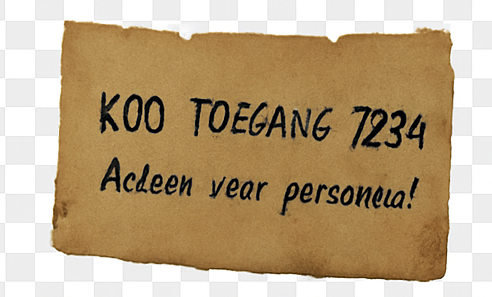 KOO TOEGANG 7234
Acleen vear personeua!